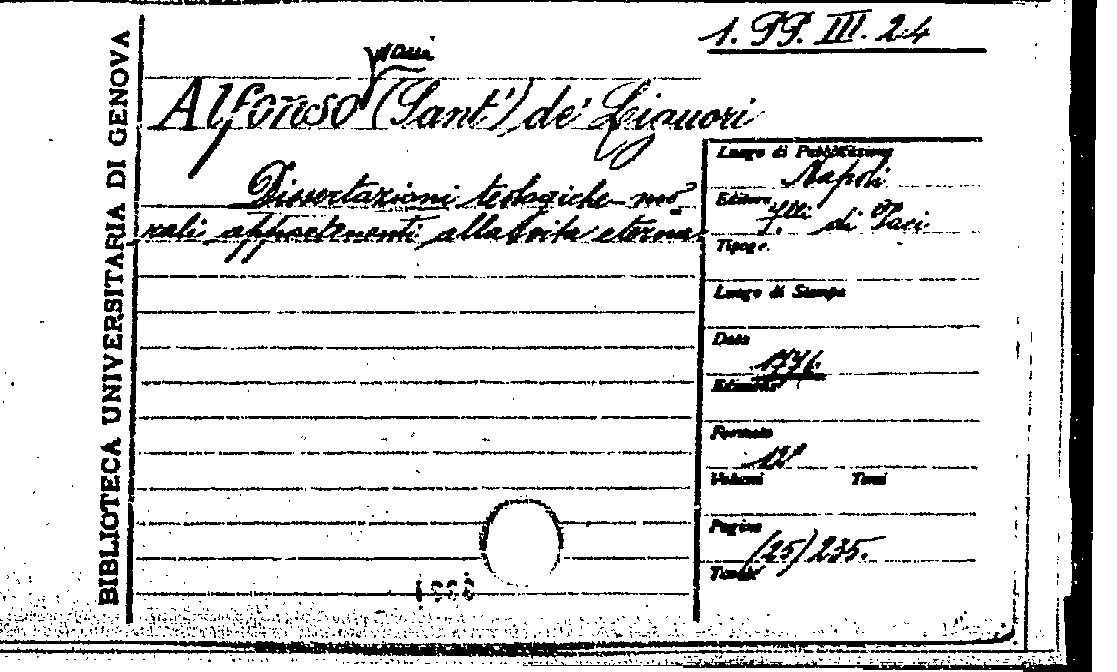 1. PP. III. 24
Alfonso (Sant') de' Liguori
Dissertazioni teologiche-mo
rali appartenenti alla vita eterna
BIBLIOTECA UNIVERSITARIA DI GENOVA
Luogo di Pubblicazione
Napoli
Editore
f.lli di Paci
Tipogr.
Luogo di Stampa
Data
1776.
Edizione
Formato
12°
Volumi Tomi
Pagine
(25) 235.
Tavole